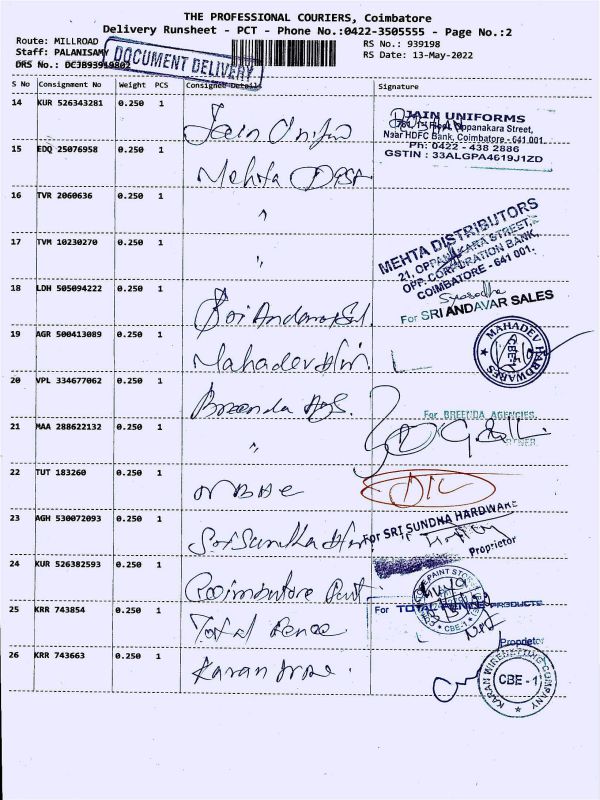 THE PROFESSIONAL COURIERS, Coimbatore
Delivery Runsheet - PCT - Phone No.:0422-3505555 - Page No.:2
Route: MILLROAD
RS No.: 939198
Staff: PALANISAMY
RS Date: 13-May-2022
DOCUMENT DELIVERY
DRS No.: DCJB93919802
S No Consignment No Weight PCS Consignee Details Signature
14 KUR 526343281 0.250 1 Jain Unifor
JAIN UNIFORMS
Oppanakara Street,
Near HDFC Bank, Coimbatore - 641 001.
Ph: 0422 - 438 2886
GSTIN : 33ALGPA4619J1ZD
15 EDQ 25076958 0.250 1 Mehta
16 TVR 2060636 0.250 1 "
17 TVM 10230270 0.250 1 "
MEHTA DISTRIBUTORS
21, OPPANAKARA STREET,
OPP. CORPORATION BANK,
COIMBATORE - 641 001.
18 LDH 505094222 0.250 1 Sri Andavar
For SRI ANDAVAR SALES
19 AGR 500413089 0.250 1 Mahadev
MAHADEV HARDWARES
CBE-1
20 VPL 334677062 0.250 1 Breenda
For BREENDA AGENCIES
21 MAA 288622132 0.250 1 "
22 TUT 183260 0.250 1
23 AGH 530072093 0.250 1 Sri Sundha
For SRI SUNDHA HARDWARE
Proprietor
24 KUR 526382593 0.250 1 Coimbatore
PAINT
CBE-1
25 KRR 743854 0.250 1 Total Fence
For TOTAL FENCE PRODUCTS
Proprietor
26 KRR 743663 0.250 1 Karan
KARAN WIRENETTING COMPANY
CBE - 1